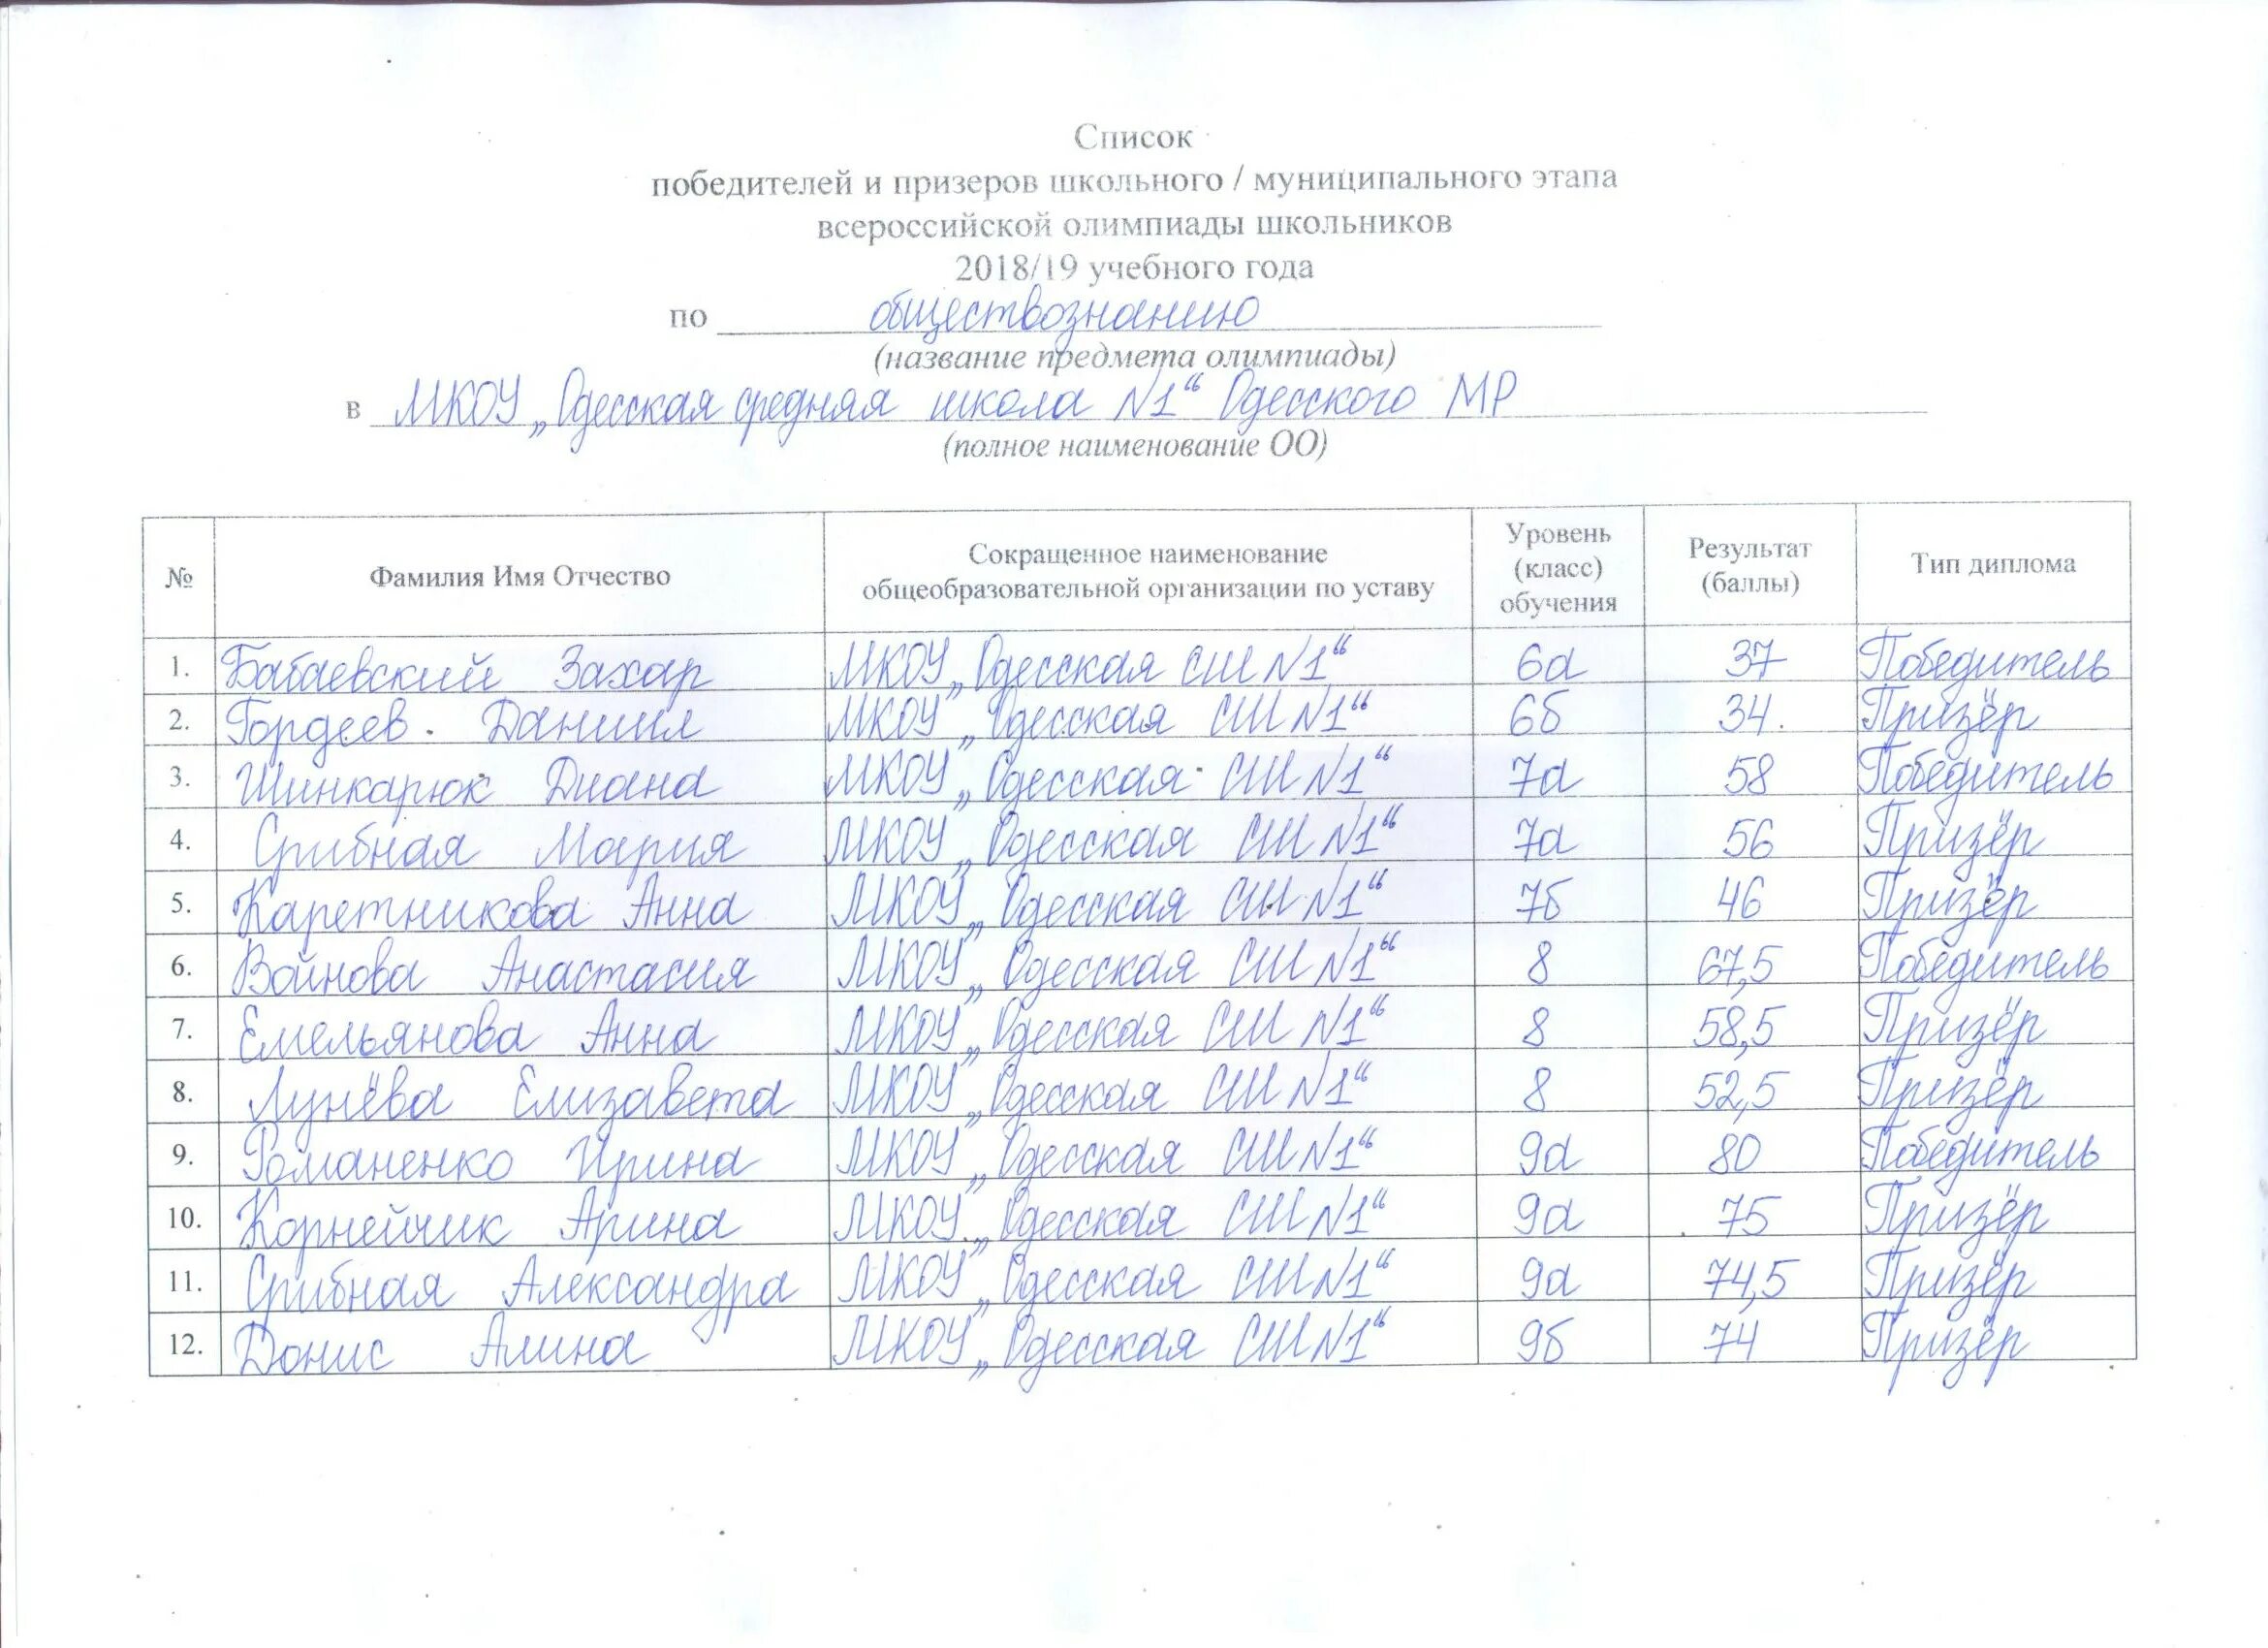 Список
победителей и призеров школьного / муниципального этапа
всероссийской олимпиады школьников
2018/19 учебного года
по обществознанию
(название предмета олимпиады)
в МКОУ „Одесская средняя школа №1“ Одесского МР
(полное наименование ОО)
№ Фамилия Имя Отчество Сокращенное наименование общеобразовательной организации по уставу Уровень (класс) обучения Результат (баллы) Тип диплома
1. Бабаевский Захар МКОУ „Одесская СШ №1“ 6а 37 Победитель
2. Гордеев Даниил МКОУ „Одесская СШ №1“ 6б 34. Призёр
3. Шинкарюк Диана МКОУ „Одесская СШ №1“ 7а 58 Победитель
4. Срибная Мария МКОУ „Одесская СШ №1“ 7а 56 Призёр
5. Каретникова Анна МКОУ „Одесская СШ №1“ 7б 46 Призёр
6. Войнова Анастасия МКОУ „Одесская СШ №1“ 8 67,5 Победитель
7. Емельянова Анна МКОУ „Одесская СШ №1“ 8 58,5 Призёр
8. Лунёва Елизавета МКОУ „Одесская СШ №1“ 8 52,5 Призёр
9. Романенко Ирина МКОУ „Одесская СШ №1“ 9а 80 Победитель
10. Корнейчик Арина МКОУ „Одесская СШ №1“ 9а 75 Призёр
11. Срибная Александра МКОУ „Одесская СШ №1“ 9а 74,5 Призёр
12. Донис Алина МКОУ „Одесская СШ №1“ 9б 74 Призёр